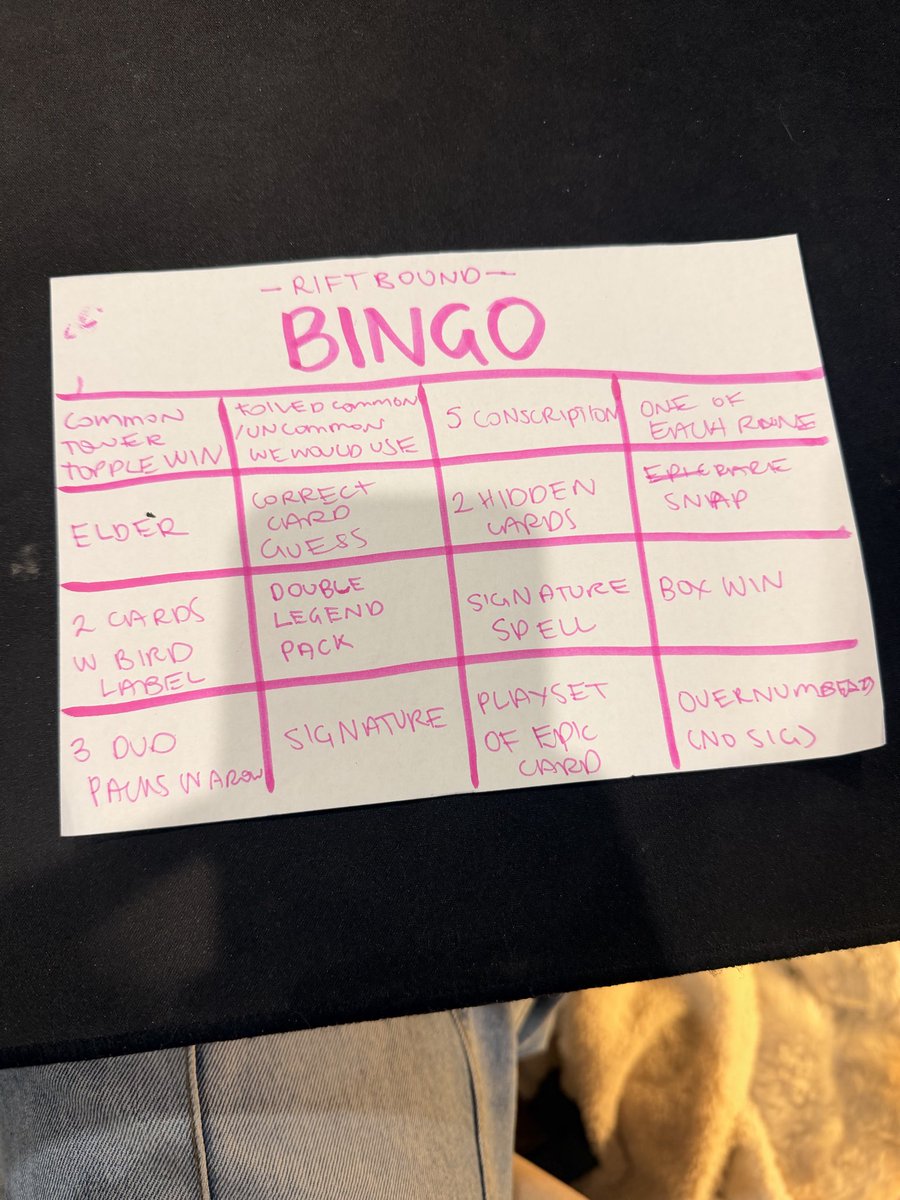 — RIFTBOUND —
BINGO
COMMON
TOWER
TOPPLE WIN
FOILED COMMON
/UNCOMMON
WE WOULD USE
5 CONSCRIPTION
ONE OF
EACH RUNE
ELDER
CORRECT
CARD
GUESS
2 HIDDEN
CARDS
RARE
SNAP
2 CARDS
W BIRD
LABEL
DOUBLE
LEGEND
PACK
SIGNATURE
SPELL
BOX WIN
3 DUO
PACKS IN A ROW
SIGNATURE
PLAYSET
OF EPIC
CARD
OVERNUMBERED
(NO SIG)